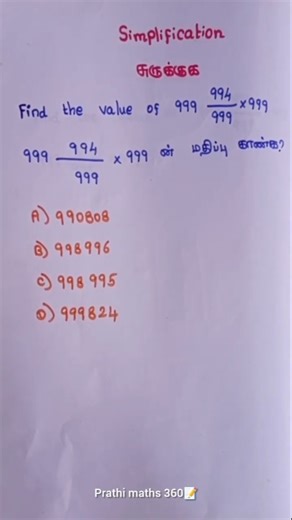 Simplification
சுருக்குக
Find the value of 999 994/999 ×999
999 994/999 × 999 ன் மதிப்பு காண்க?
A) 990808
B) 998996
C) 998995
D) 999824
Prathi maths 360📝